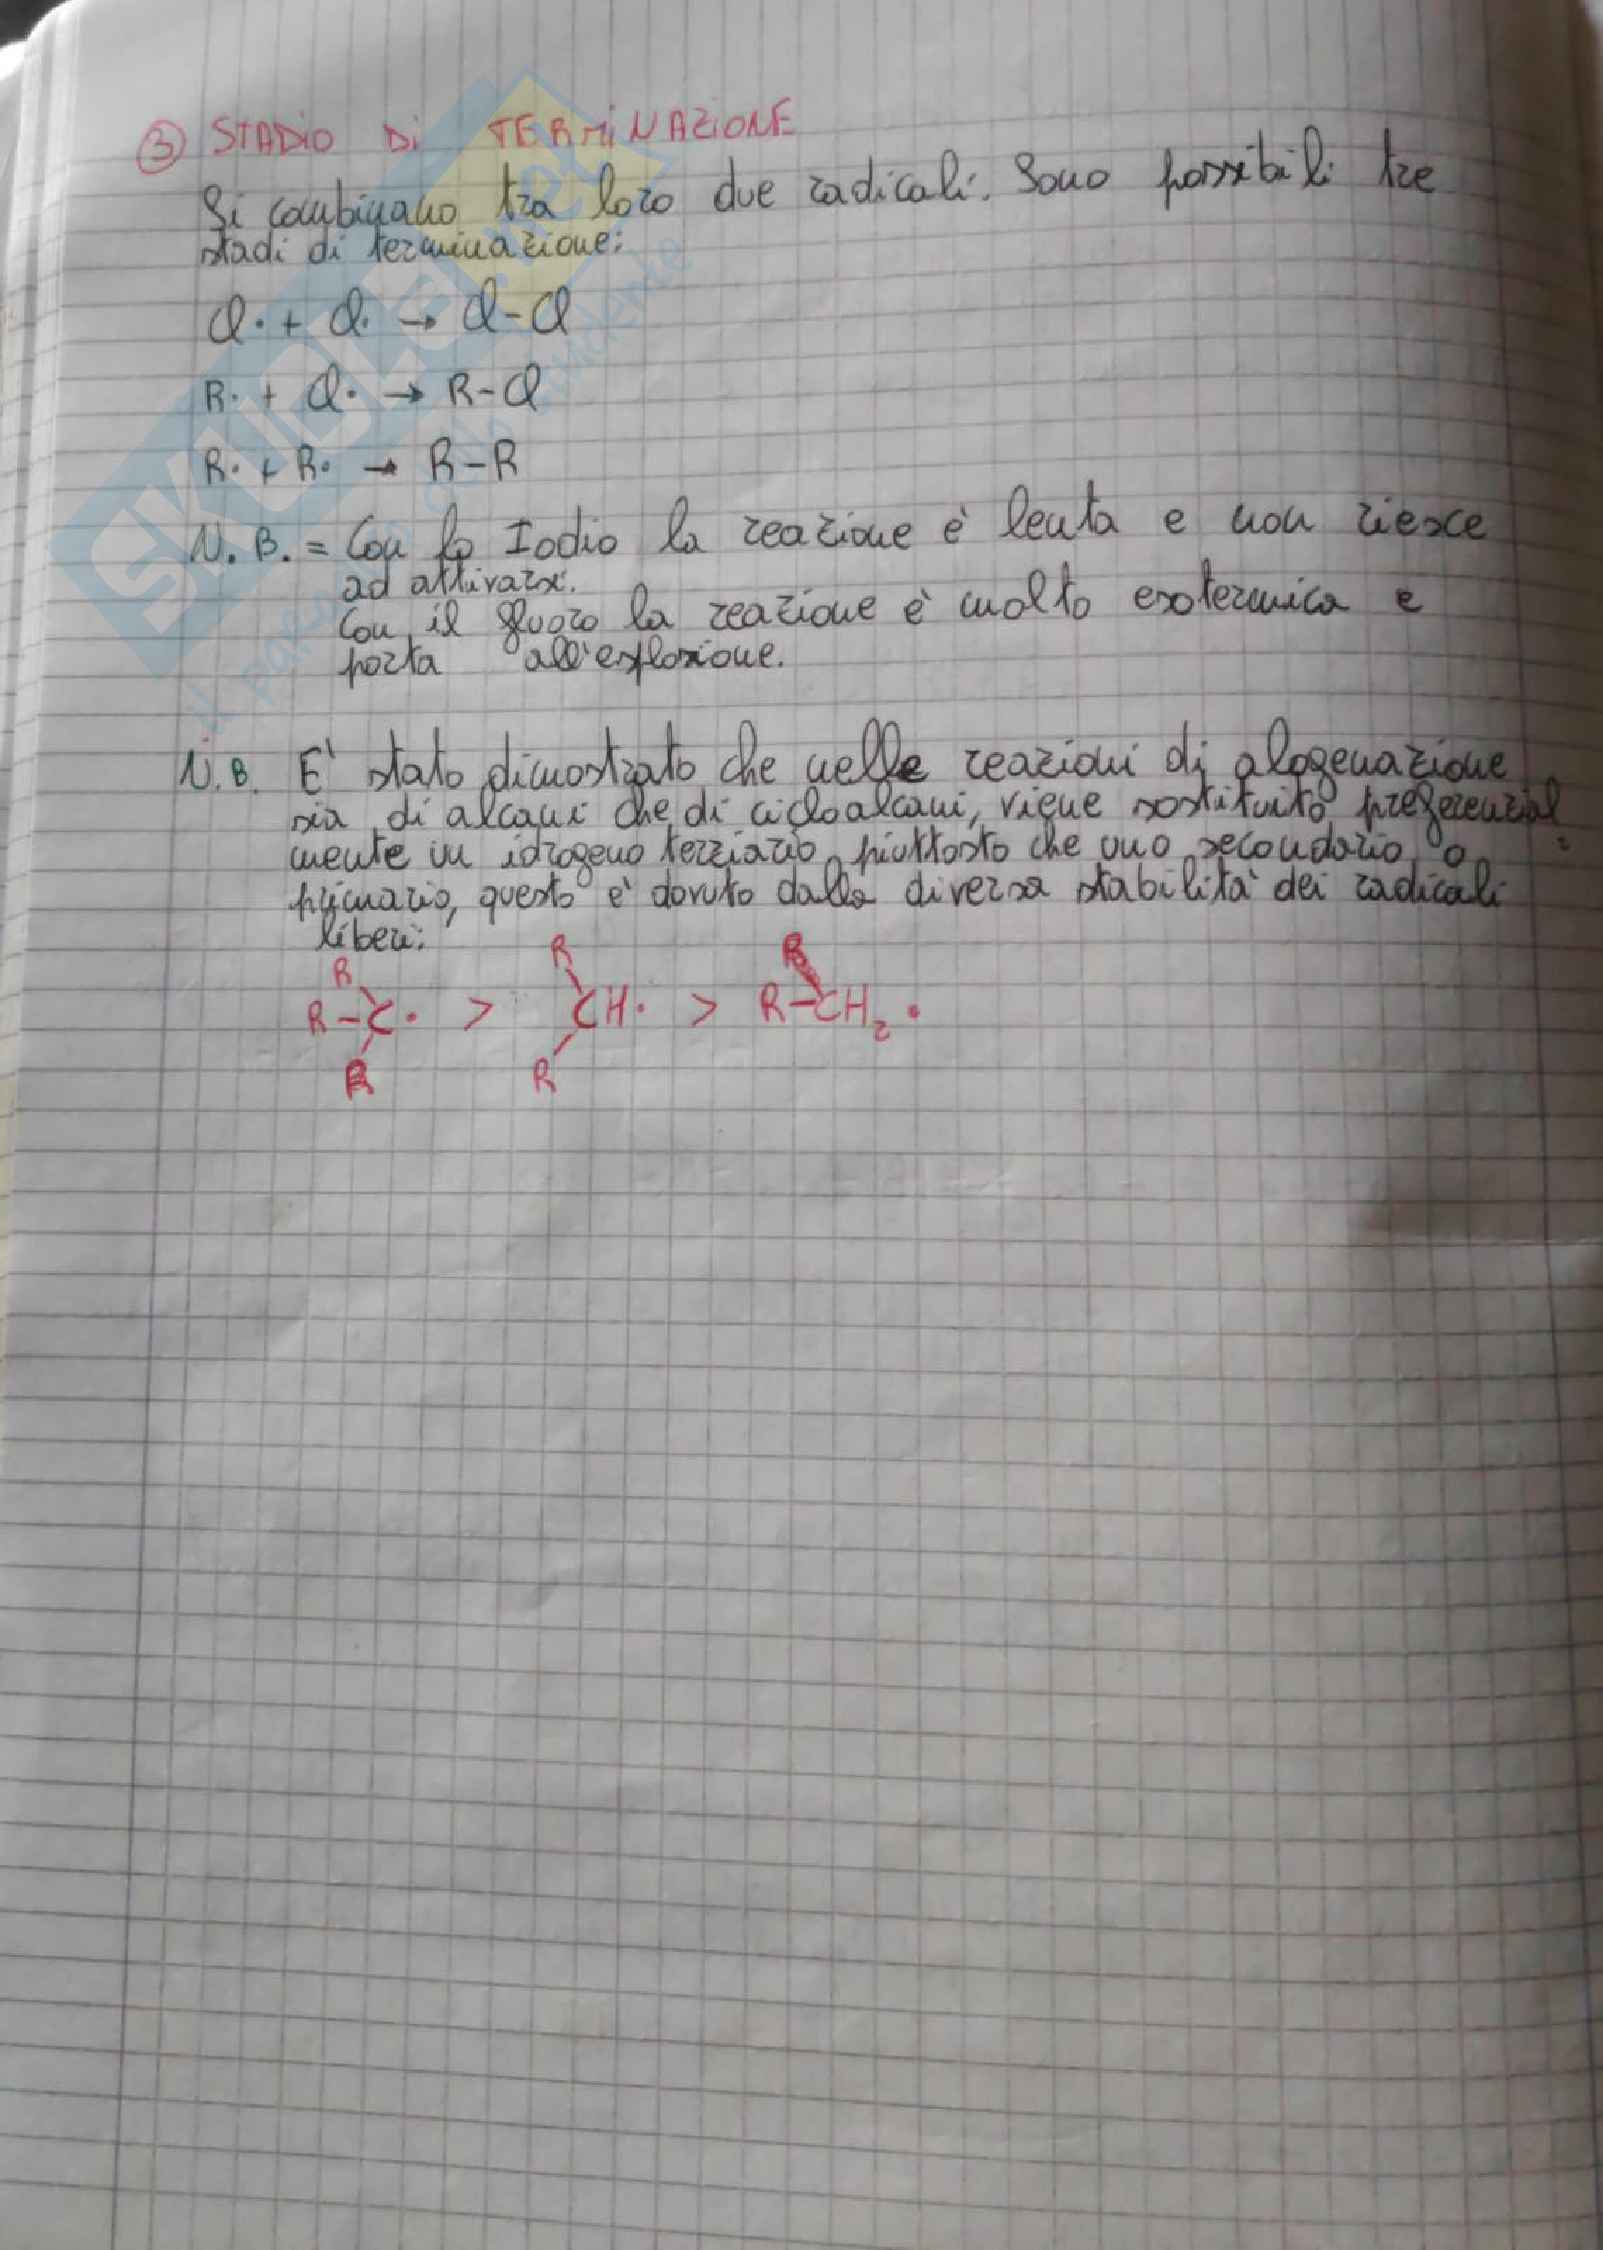 3 STADIO DI TERMINAZIONE
Si combinano tra loro due radicali. Sono possibili tre
stadi di terminazione:
Cl· + Cl· → Cl-Cl
R· + Cl· → R-Cl
R· + R· → R-R
N.B. = Con lo Iodio la reazione è lenta e non riesce
ad attivarsi.
Con il fluoro la reazione è molto esotermica e
porta all'esplosione.
N.B. E' stato dimostrato che nelle reazioni di alogenazione
sia di alcani che di cicloalcani, viene sostituito preferenzial
mente un idrogeno terziario piuttosto che uno secondario o
primario, questo è dovuto dalla diversa stabilità dei radicali
liberi:
R R R
R-C· > CH· > R-CH2·
R R
SKUOLA.net
il paradiso dello studente